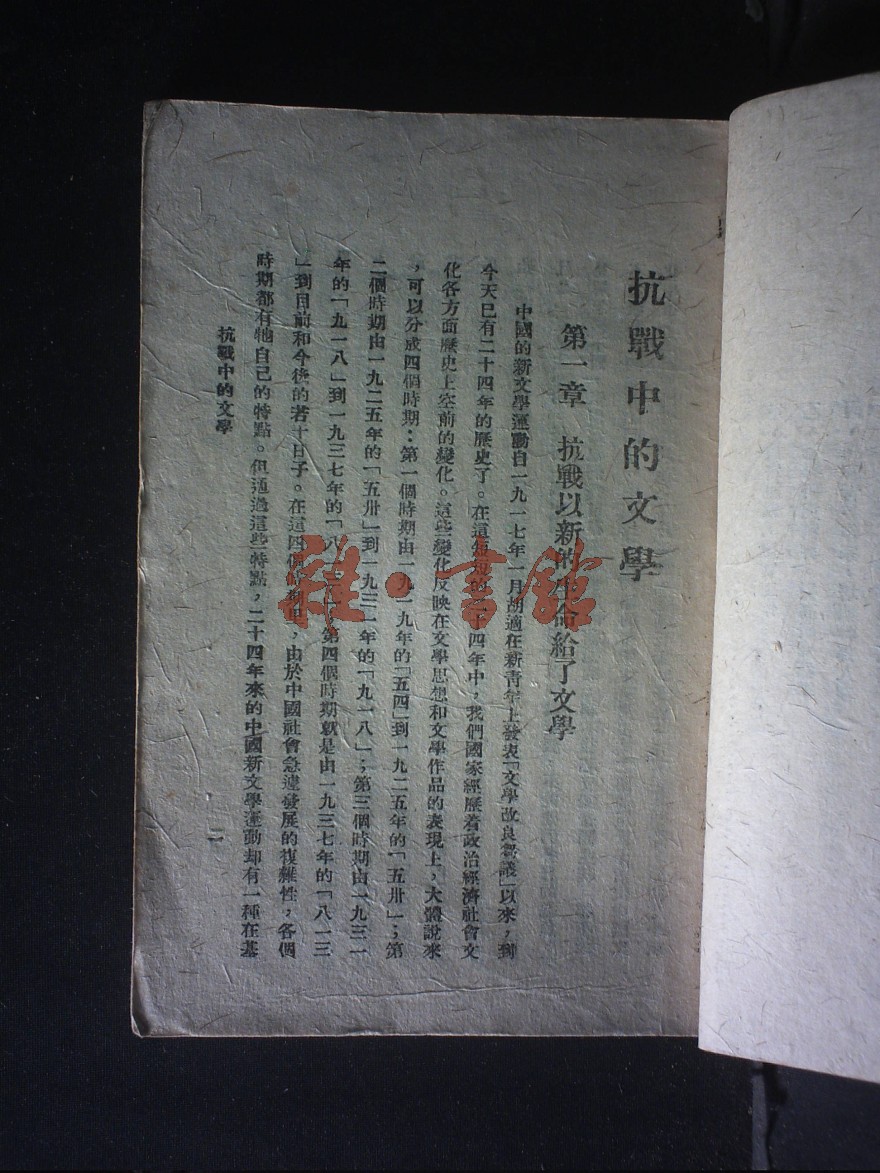 抗戰中的文學
第一章 抗戰以新的生命給了文學
中國的新文學運動自一九一七年一月胡適在新青年上發表「文學改良芻議」以來,到
今天已有二十四年的歷史了。在這短短的二十四年中,我們國家經歷着政治經濟社會文
化各方面歷史上空前的變化。這些變化反映在文學思想和文學作品的表現上,大體說來
,可以分成四個時期:第一個時期由一九一九年的「五四」到一九二五年的「五卅」;第
二個時期由一九二五年的「五卅」到一九三一年的「九一八」;第三個時期由一九三一
年的「九一八」到一九三七年的「八一三」;第四個時期就是由一九三七年的「八一三
」到目前和今後的若干日子。在這四個時期里,由於中國社會急遽發展的複雜性,各個
時期都有牠自己的特點。但通過這些特點,二十四年來的中國新文學運動却有一種在基
抗戰中的文學
雜·書館